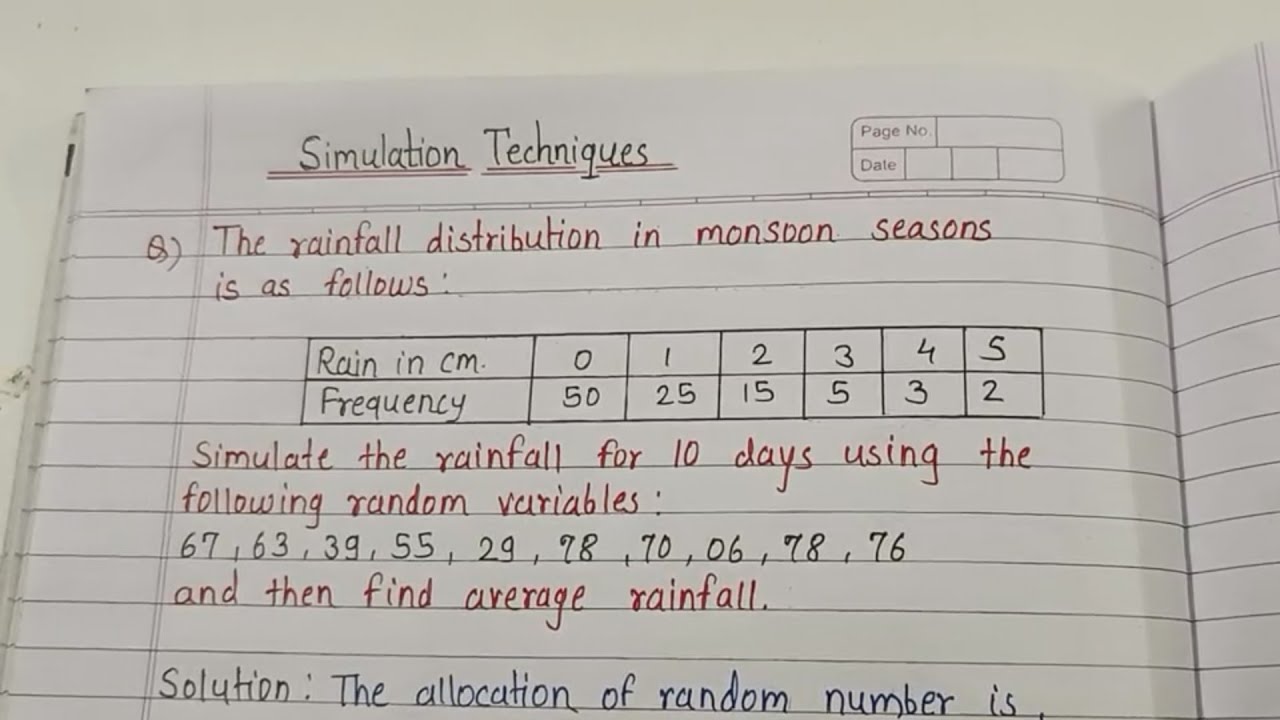 Simulation Techniques
Page No.
Date
Q) The rainfall distribution in monsoon seasons
is as follows:
Rain in cm. 0 1 2 3 4 5
Frequency 50 25 15 5 3 2
Simulate the rainfall for 10 days using the
following random variables:
67, 63, 39, 55, 29, 78, 70, 06, 78, 76
and then find average rainfall.
Solution: The allocation of random number is